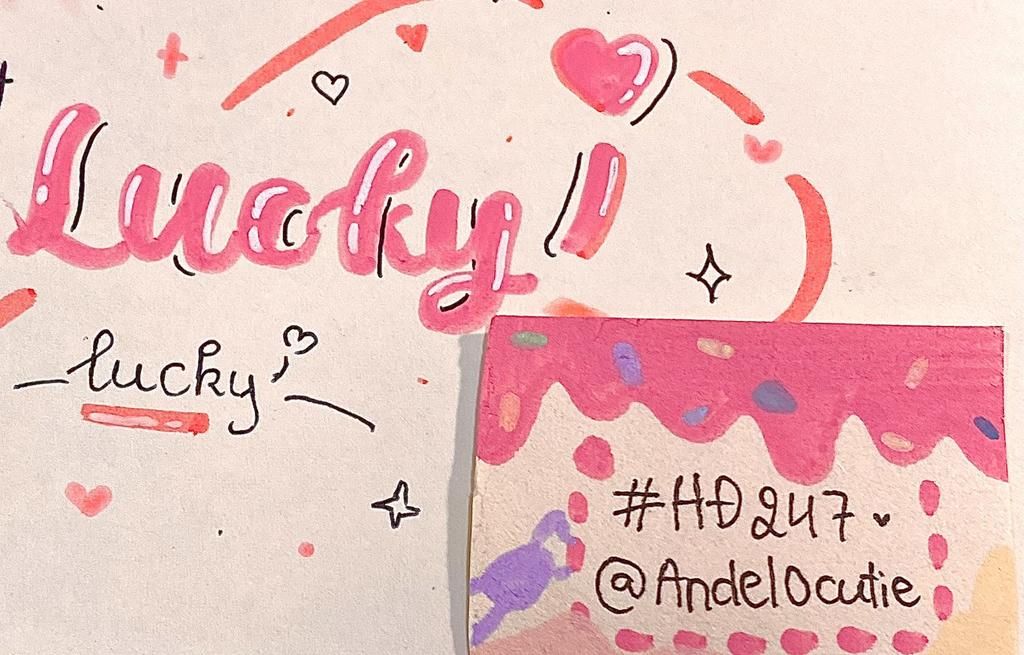 Lucky!
lucky!
#HĐ247
@Andel0cutie